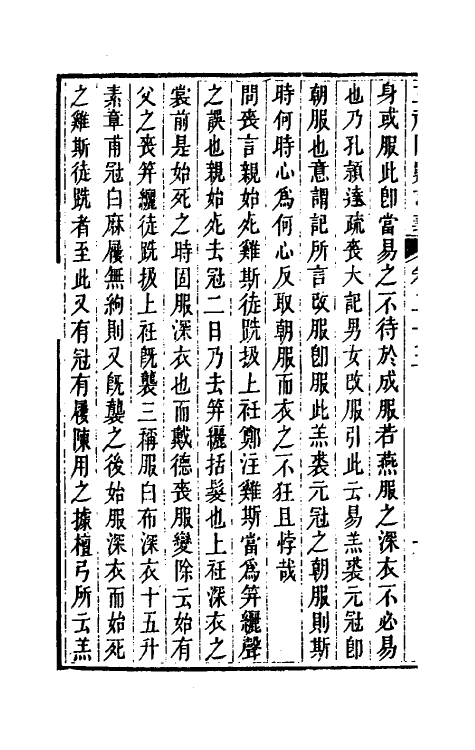 身或服此卽當易之不待於成服若燕服之深衣不必易
也乃孔穎達疏喪大記男女改服引此云易羔裘元冠卽
朝服也意謂記所言改服卽服此羔裘元冠之朝服則斯
時何時心爲何心反取朝服而衣之不狂且悖哉
問喪言親始死雞斯徒跣扱上衽鄭注雞斯當爲笄纚聲
之誤也親始死去冠二日乃去笄纚括髮也上衽深衣之
裳前是始死之時固服深衣也而戴德喪服變除云始有
父之喪笄纚徒跣扱上衽旣襲三稱服白布深衣十五升
素章甫冠白麻屨無絇則又旣襲之後始服深衣而始死
之雞斯徒跣者至此又有冠有屨陳用之據檀弓所云羔